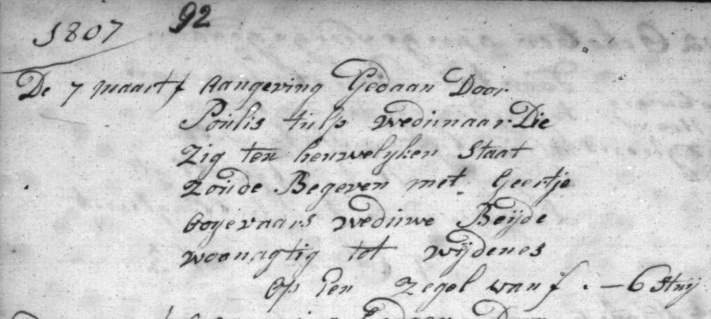 1807 92
De 7 maart Aangeving Gedaan Door
Poulis tulp wedunaar Die
Zig ten heuwelyken Staat
Zoude Begeven met Geertje
weduwe Beijde
woonagtig tot wijdenes
Op Een Zegel van f . – 6 Stuij